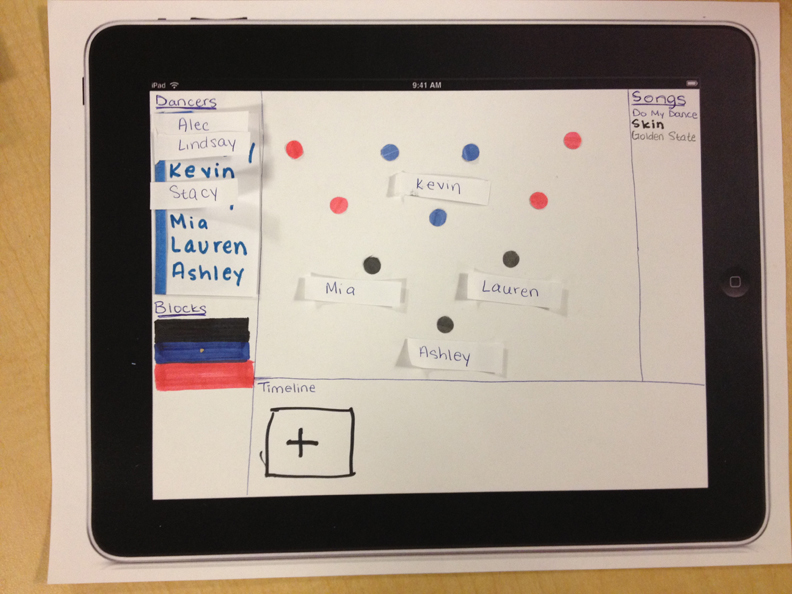 iPad
9:41 AM
Dancers
Alec
Lindsay
Kevin
Stacy
Mia
Lauren
Ashley
Blocks
Kevin
Mia
Lauren
Ashley
Songs
Do My Dance
Skin
Golden State
Timeline
+